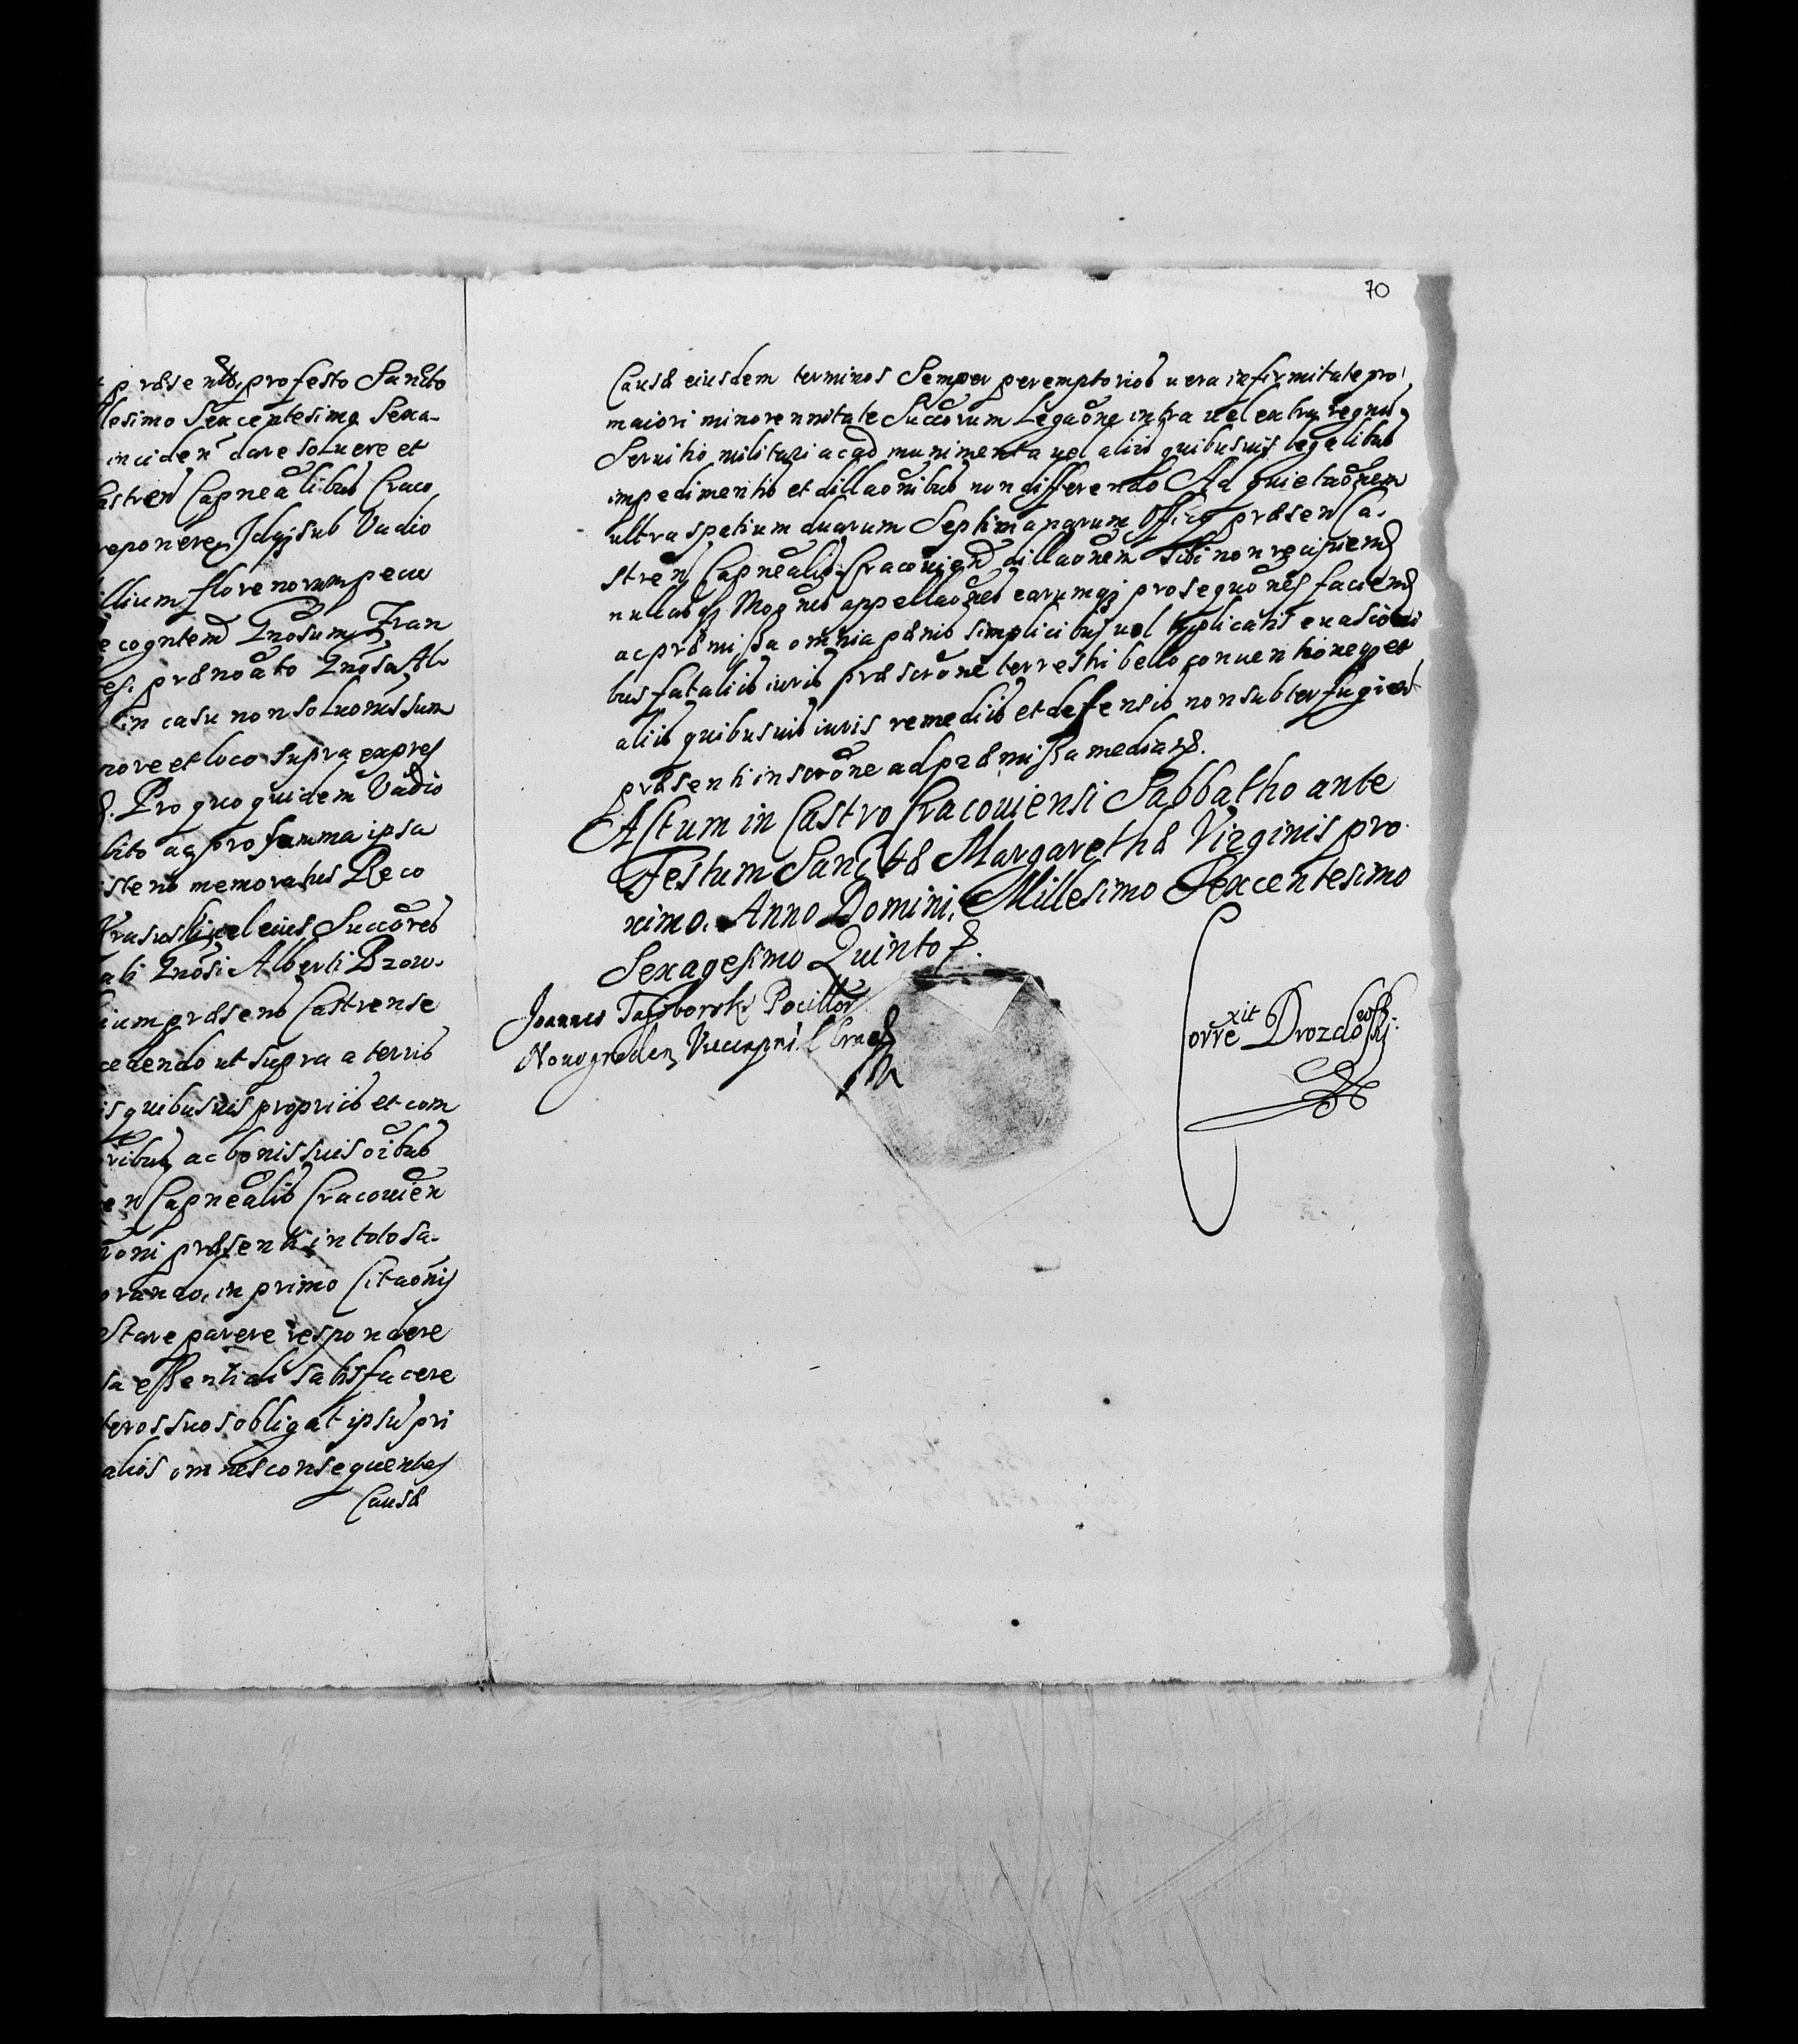 præsentis, pro festo Sancto
lesimo Sexcentesimo Sexa-
inciden dare soluere et
Castren Capnealibus Craco
reponere, Idq; sub Vadio
illium florenorum pecu
recogntem Gnosum Fran
præno̅ato Gnoso Al-
in casu non soluonis sum
more et loco supra expres
Pro quo quidem Vadio
bito ac pro summa ipsa
istens memoratus Reco
vel eius Succores
Gnosi Alberti Brzow-
ium præsens Castrense
cedendo ut supra a terris
is quibusuis propriis et com
ribus ac bonis suis oibus
en Capnealis Cracouien
oni præsenti in toto sa-
orando, in primo Citaonis
Stare parere respondere
sa essentiali satisfacere
teros suos obligat ipsu pri
alios omnes consequentes
Causæ
70
Causæ eiusdem terminos Semper peremptorios uera infirmitate pro
maiori minorennitate Succorum Legaone intra uel extra regnu
Seruitio militari ac ad munimenta uel aliis quibusuis legalibus
impedimentis et dillaonibus non differendo Ad quietaonem
ultra spatium duarum Septimanarum Officio præsen Ca-
stren Capnealis Cracouien dillaonem Sibi non recipiend
nullasq; Mog nes appellaones earumq; prosequones faciend
ac præmissa omnia pænis simplicibus uel triplicatis euasioni
bus fataliis iuris præscrone terrestri bello conuentioneq; et
aliis quibusuis iuris remediis et defensis non subterfugiend
præsenti inscrone ad præmissa median.
Actum in Castro Cracouiensi Sabbatho ante
Festum Sanctæ Margarethæ Virginis pro
ximo. Anno Domini, Millesimo Sexcentesimo
Sexagesimo Quinto
Joannes Pocillator
Nouogroden Vicecapni
Correxit Drozdowski